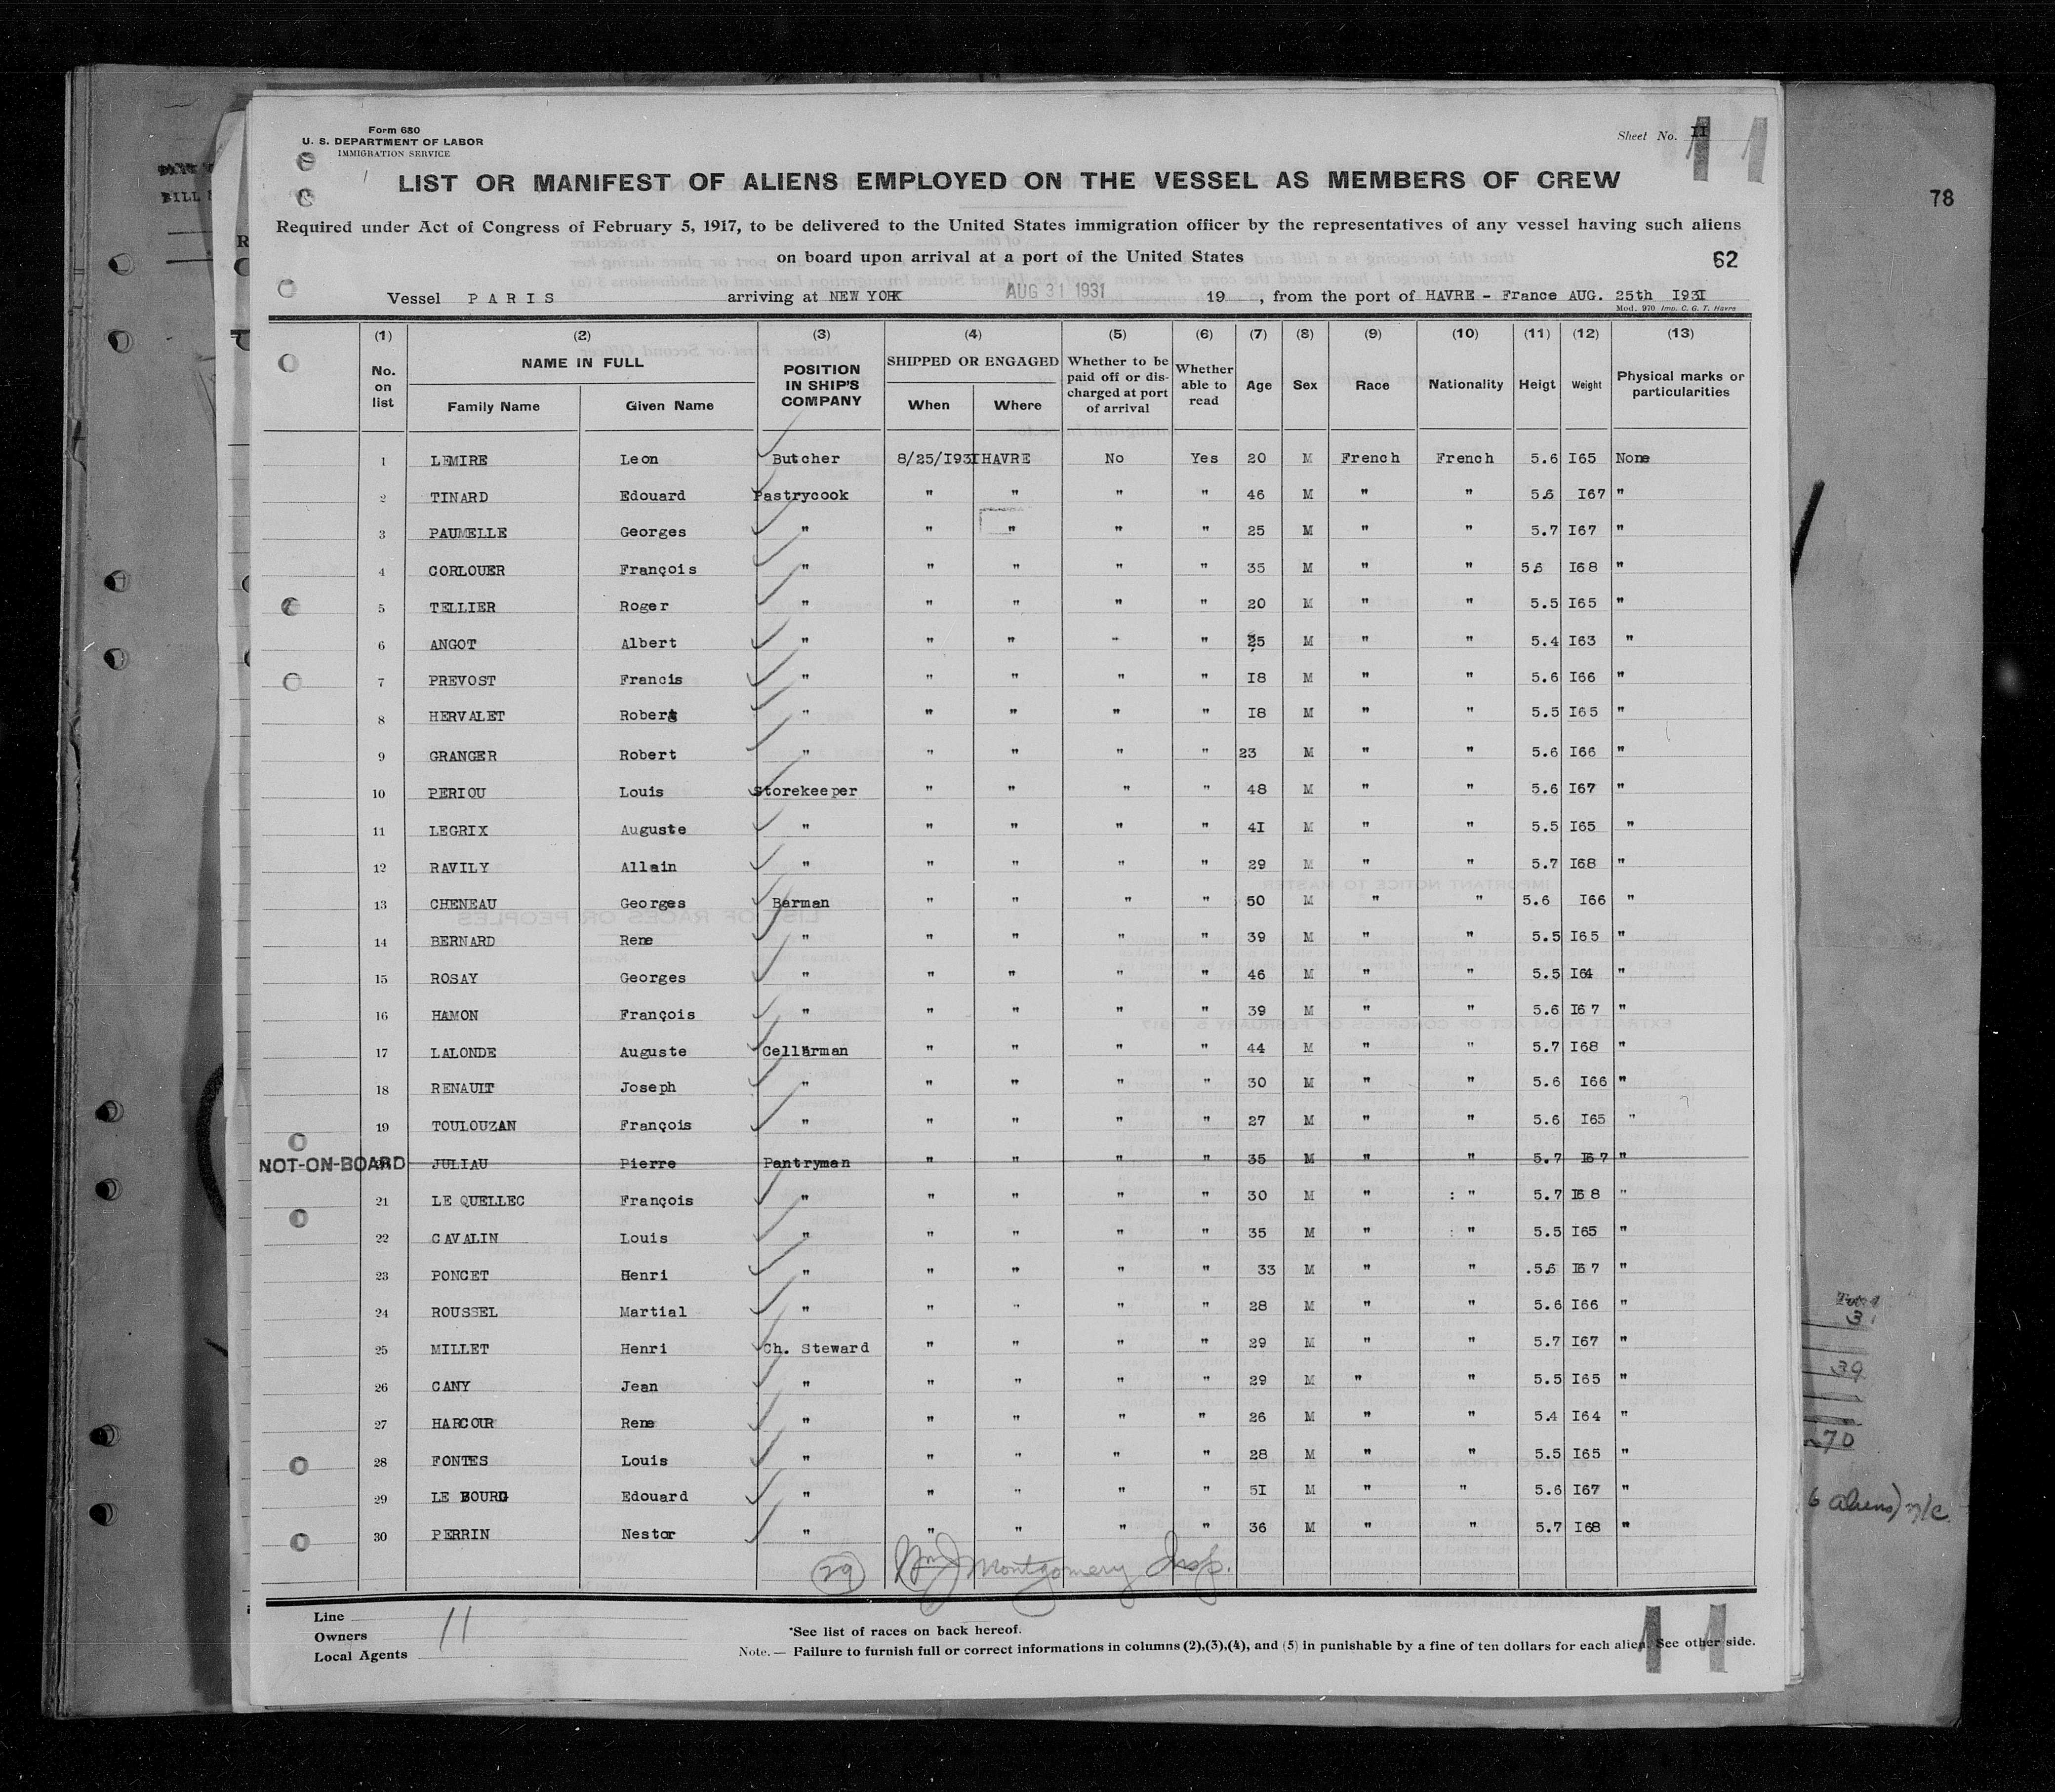 Form 680
U. S. DEPARTMENT OF LABOR
IMMIGRATION SERVICE
Sheet No. II
11
LIST OR MANIFEST OF ALIENS EMPLOYED ON THE VESSEL AS MEMBERS OF CREW
78
Required under Act of Congress of February 5, 1917, to be delivered to the United States immigration officer by the representatives of any vessel having such aliens
on board upon arrival at a port of the United States
62
Vessel PARIS arriving at NEW YORK AUG 31 1931 19 , from the port of HAVRE - France AUG. 25th I93I
Mod. 970 Imp. C. G. T. Havre
(1) (2) (3) (4) (5) (6) (7) (8) (9) (10) (11) (12) (13)
No. on list NAME IN FULL Family Name Given Name POSITION IN SHIP'S COMPANY SHIPPED OR ENGAGED When Where Whether to be paid off or discharged at port of arrival Whether able to read Age Sex Race Nationality Heigt Weight Physical marks or particularities
1 LEMIRE Leon Butcher 8/25/I93I HAVRE No Yes 20 M French French 5.6 I65 None
2 TINARD Edouard Pastrycook " " " " 46 M " " 5.6 I67 "
3 PAUMELLE Georges " " " " " 25 M " " 5.7 I67 "
4 CORLOUER François " " " " " 35 M " " 5.6 I68 "
5 TELLIER Roger " " " " " 20 M " " 5.5 I65 "
6 ANGOT Albert " " " " " 25 M " " 5.4 I63 "
7 PREVOST Francis " " " " " I8 M " " 5.6 I66 "
8 HERVALET Robert " " " " " I8 M " " 5.5 I65 "
9 GRANGER Robert " " " " " 23 M " " 5.6 I66 "
10 PERIOU Louis Storekeeper " " " " 48 M " " 5.6 I67 "
11 LEGRIX Auguste " " " " " 4I M " " 5.5 I65 "
12 RAVILY Allain " " " " " 29 M " " 5.7 I68 "
13 CHENEAU Georges Barman " " " " 50 M " " 5.6 I66 "
14 BERNARD Rene " " " " " 39 M " " 5.5 I65 "
15 ROSAY Georges " " " " " 46 M " " 5.5 I64 "
16 HAMON François " " " " " 39 M " " 5.6 I67 "
17 LALONDE Auguste Cellarman " " " " 44 M " " 5.7 I68 "
18 RENAULT Joseph " " " " " 30 M " " 5.6 I66 "
19 TOULOUZAN François " " " " " 27 M " " 5.6 I65 "
NOT-ON-BOARD JULIAU Pierre Pantryman " " " " 35 M " " 5.7 I67 "
21 LE QUELLEC François " " " " " 30 M " : " 5.7 I68 "
22 CAVALIN Louis " " " " " 35 M " : " 5.5 I65 "
23 PONCET Henri " " " " " 33 M " " .5.6 I67 "
24 ROUSSEL Martial " " " " " 28 M " " 5.6 I66 "
25 MILLET Henri Ch. Steward " " " " 29 M " " 5.7 I67 "
26 CANY Jean " " " " " 29 M " " 5.5 I65 "
27 HARCOUR Rene " " " " " 26 M " " 5.4 I64 "
28 FONTES Louis " " " " " 28 M " " 5.5 I65 "
29 LE BOURG Edouard " " " " " 5I M " " 5.6 I67 "
30 PERRIN Nestor " " " " " 36 M " " 5.7 I68 "
29 Wm J Montgomery Insp.
Line
Owners
Local Agents
11
*See list of races on back hereof.
Note. — Failure to furnish full or correct informations in columns (2),(3),(4), and (5) in punishable by a fine of ten dollars for each alien. See other side.
11
Total
3
39
70
6 aliens) n/c